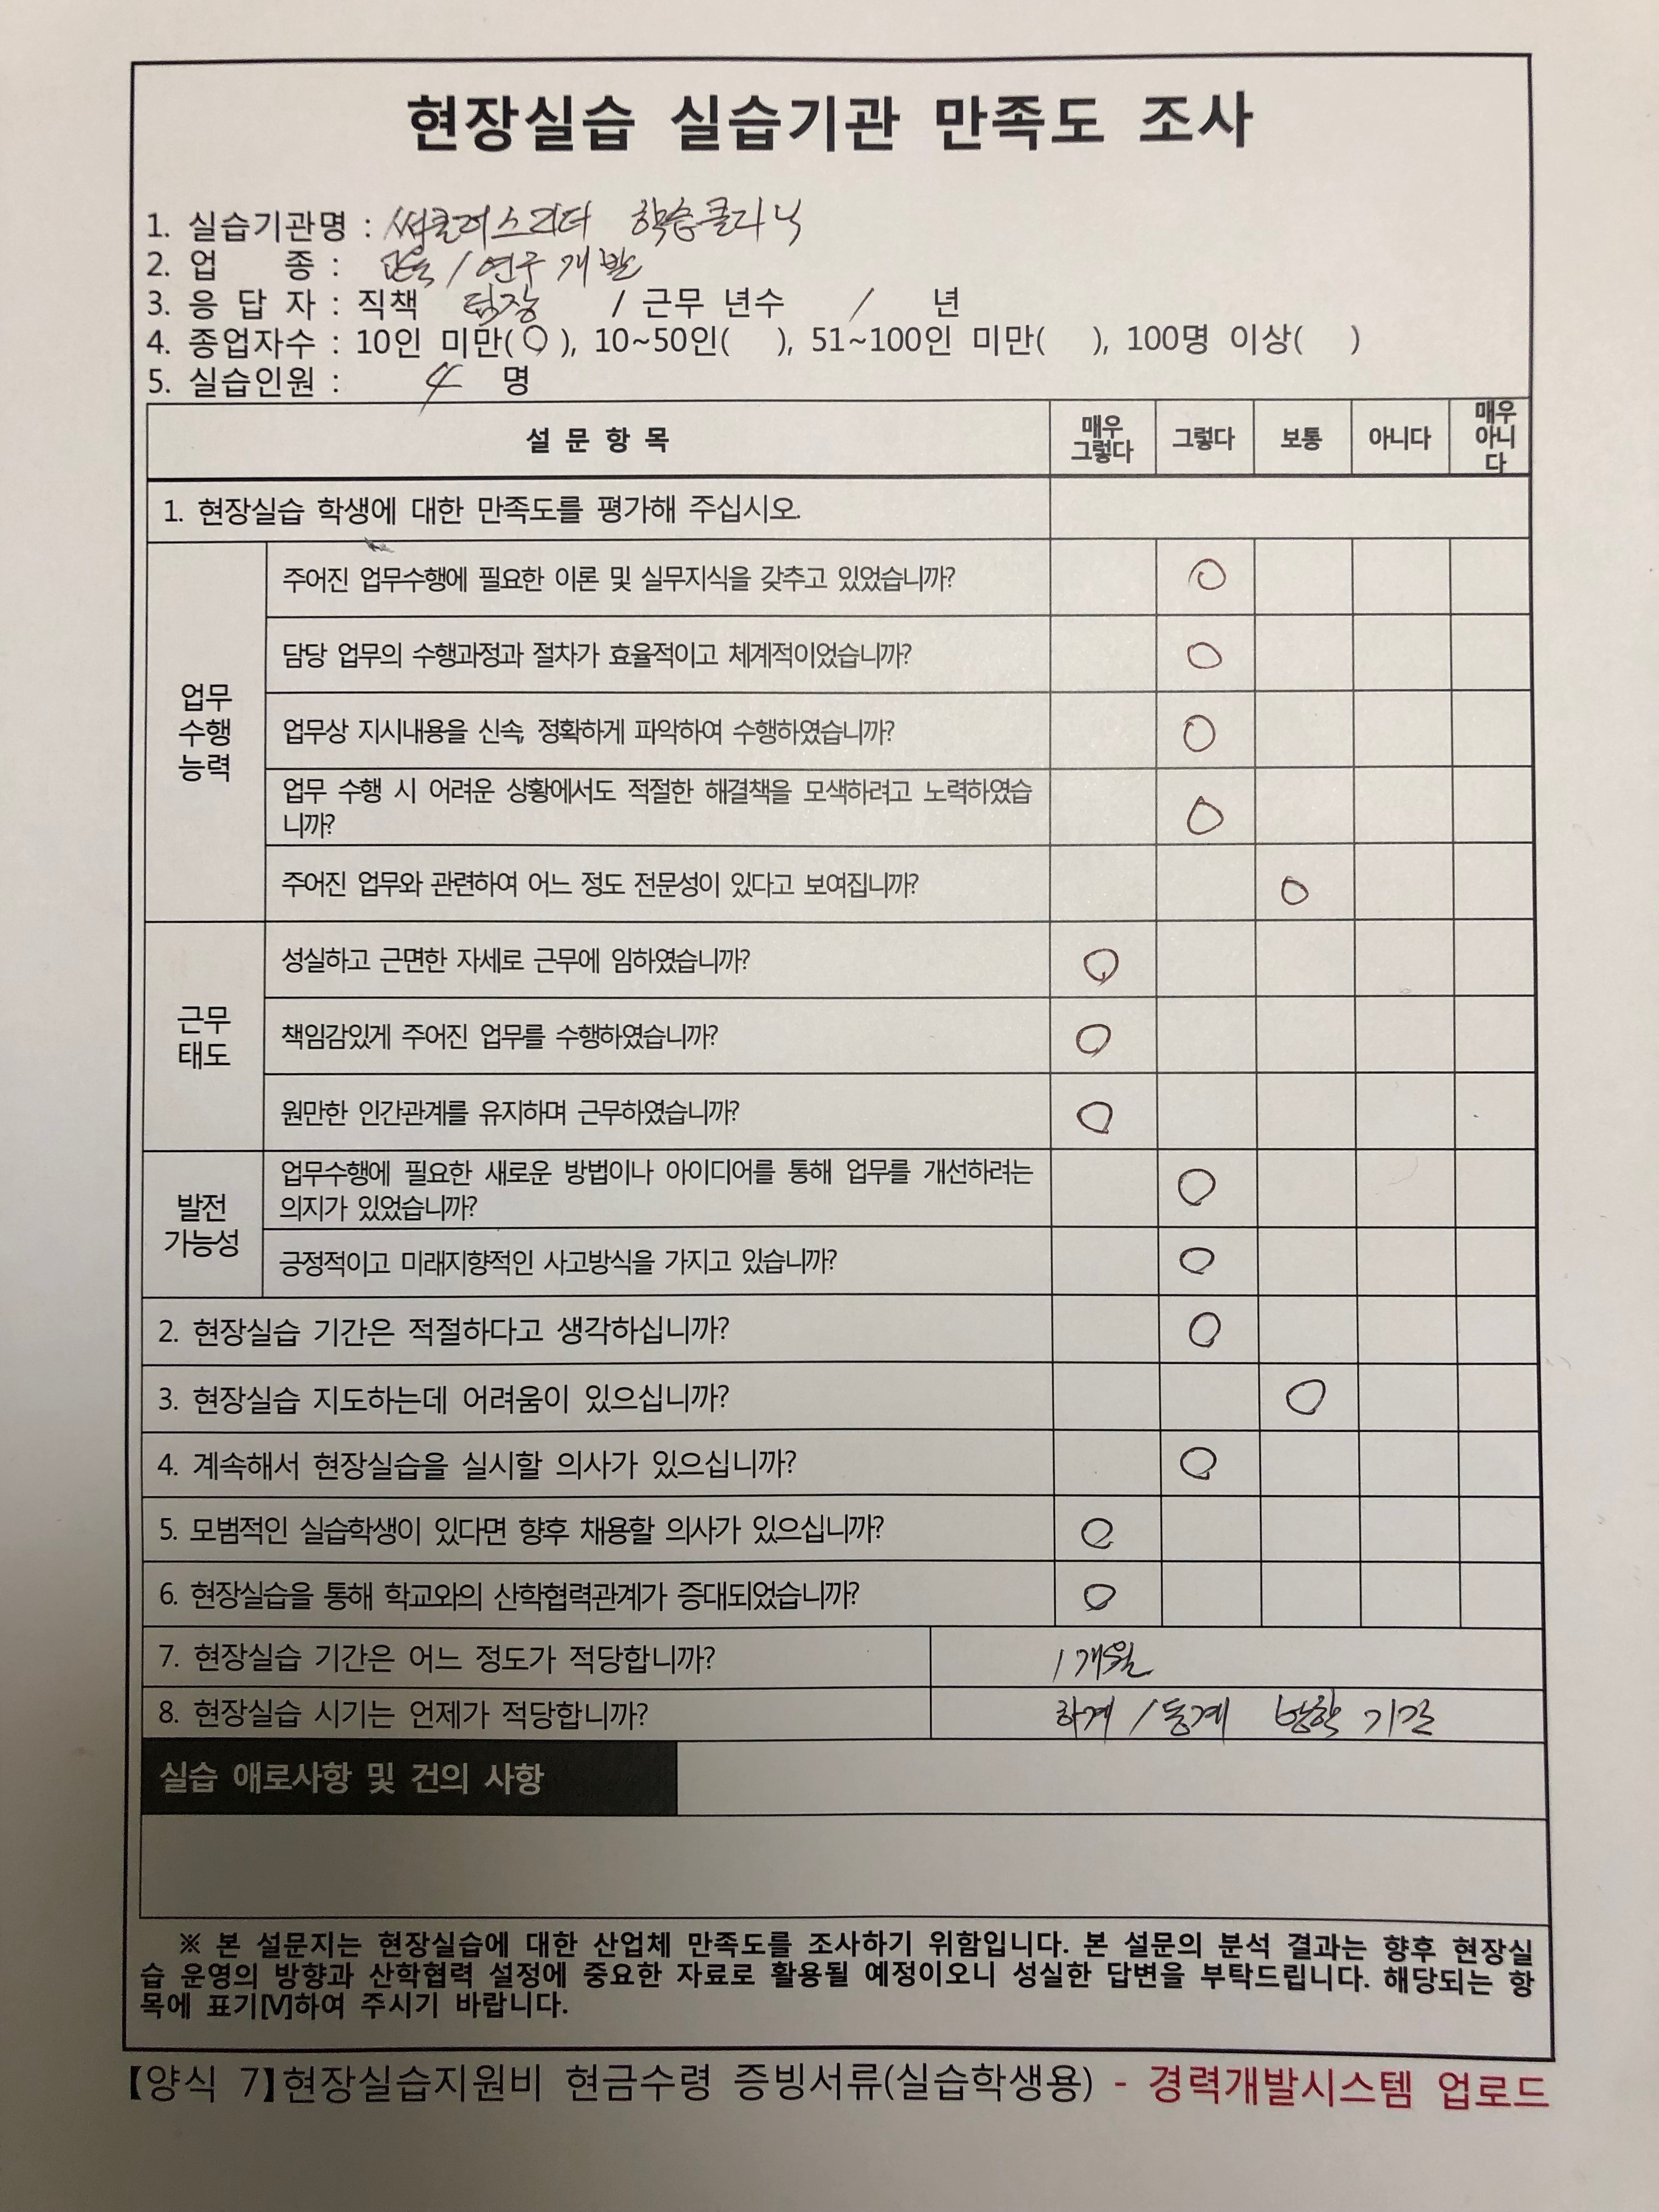 현장실습 실습기관 만족도 조사
1. 실습기관명 : 써클러스리더 학습클리닉
2. 업 종 : 교육 / 연구개발
3. 응 답 자 : 직책 팀장 / 근무 년수 1 년
4. 종업자수 : 10인 미만(O), 10~50인( ), 51~100인 미만( ), 100명 이상( )
5. 실습인원 : 4 명
설 문 항 목 매우 그렇다 그렇다 보통 아니다 매우 아니다
1. 현장실습 학생에 대한 만족도를 평가해 주십시오.
업무 수행 능력
주어진 업무수행에 필요한 이론 및 실무지식을 갖추고 있었습니까? O
담당 업무의 수행과정과 절차가 효율적이고 체계적이었습니까? O
업무상 지시내용을 신속, 정확하게 파악하여 수행하였습니까? O
업무 수행 시 어려운 상황에서도 적절한 해결책을 모색하려고 노력하였습
니까? O
주어진 업무와 관련하여 어느 정도 전문성이 있다고 보여집니까? O
근무 태도
성실하고 근면한 자세로 근무에 임하였습니까? O
책임감있게 주어진 업무를 수행하였습니까? O
원만한 인간관계를 유지하며 근무하였습니까? O
발전 가능성
업무수행에 필요한 새로운 방법이나 아이디어를 통해 업무를 개선하려는
의지가 있었습니까? O
긍정적이고 미래지향적인 사고방식을 가지고 있습니까? O
2. 현장실습 기간은 적절하다고 생각하십니까? O
3. 현장실습 지도하는데 어려움이 있으십니까? O
4. 계속해서 현장실습을 실시할 의사가 있으십니까? O
5. 모범적인 실습학생이 있다면 향후 채용할 의사가 있으십니까? O
6. 현장실습을 통해 학교와의 산학협력관계가 증대되었습니까? O
7. 현장실습 기간은 어느 정도가 적당합니까? 1개월
8. 현장실습 시기는 언제가 적당합니까? 하계 / 동계 방학 기간
실습 애로사항 및 건의 사항
※ 본 설문지는 현장실습에 대한 산업체 만족도를 조사하기 위함입니다. 본 설문의 분석 결과는 향후 현장실
습 운영의 방향과 산학협력 설정에 중요한 자료로 활용될 예정이오니 성실한 답변을 부탁드립니다. 해당되는 항
목에 표기[V]하여 주시기 바랍니다.
【양식 7】현장실습지원비 현금수령 증빙서류(실습학생용) - 경력개발시스템 업로드